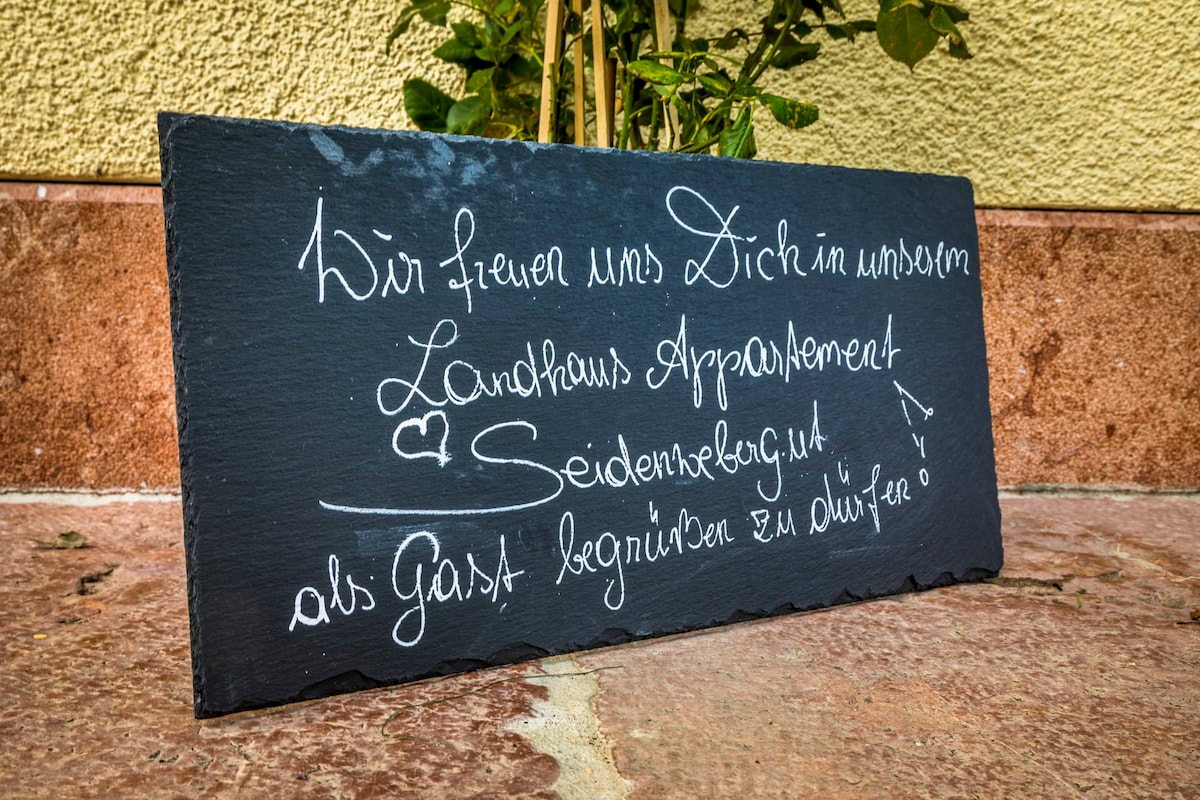 Wir freuen uns Dich in unserem
Landhaus Appartement
Seidenwebergut
als Gast begrüßen zu dürfen!